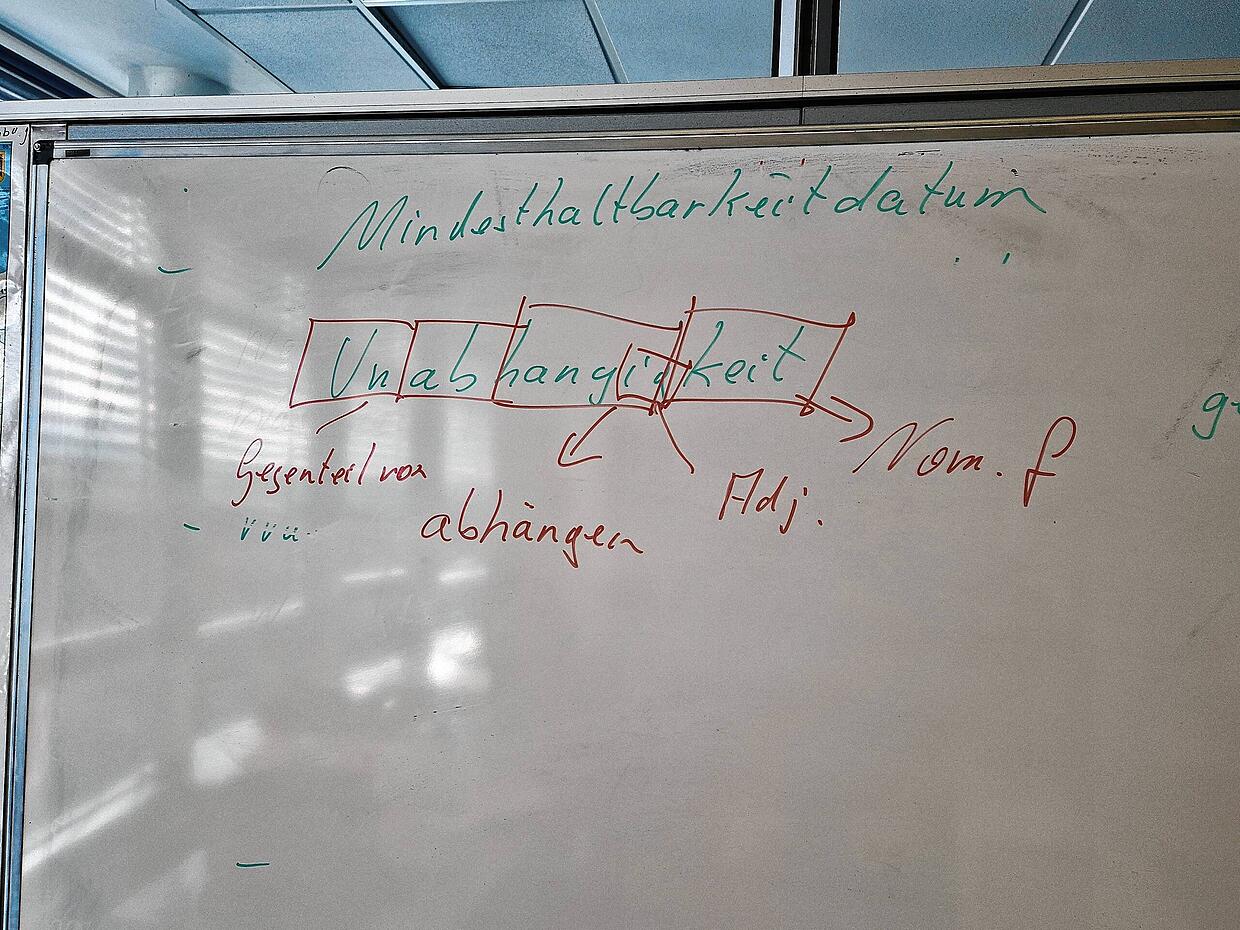 Mindesthaltbarkeitdatum
Unabhangigkeit
Nom. f
Gegenteil von
Adj.
abhängen